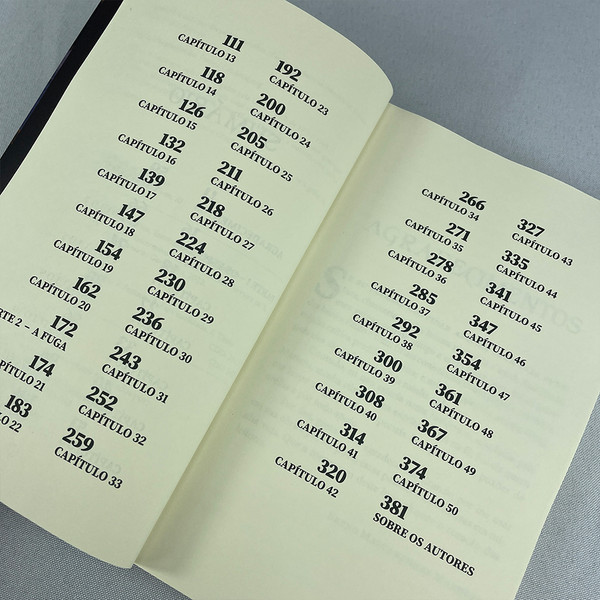 111
CAPÍTULO 13
118
CAPÍTULO 14
126
CAPÍTULO 15
132
CAPÍTULO 16
139
CAPÍTULO 17
147
CAPÍTULO 18
154
CAPÍTULO 19
162
CAPÍTULO 20
172
2 – A FUGA
174
CAPÍTULO 21
183
22
192
CAPÍTULO 23
200
CAPÍTULO 24
205
CAPÍTULO 25
211
CAPÍTULO 26
218
CAPÍTULO 27
224
CAPÍTULO 28
230
CAPÍTULO 29
236
CAPÍTULO 30
243
CAPÍTULO 31
252
CAPÍTULO 32
259
CAPÍTULO 33
266
CAPÍTULO 34
271
CAPÍTULO 35
278
CAPÍTULO 36
285
CAPÍTULO 37
292
CAPÍTULO 38
300
CAPÍTULO 39
308
CAPÍTULO 40
314
CAPÍTULO 41
320
CAPÍTULO 42
327
CAPÍTULO 43
335
CAPÍTULO 44
341
CAPÍTULO 45
347
CAPÍTULO 46
354
CAPÍTULO 47
361
CAPÍTULO 48
367
CAPÍTULO 49
374
CAPÍTULO 50
381
SOBRE OS AUTORES